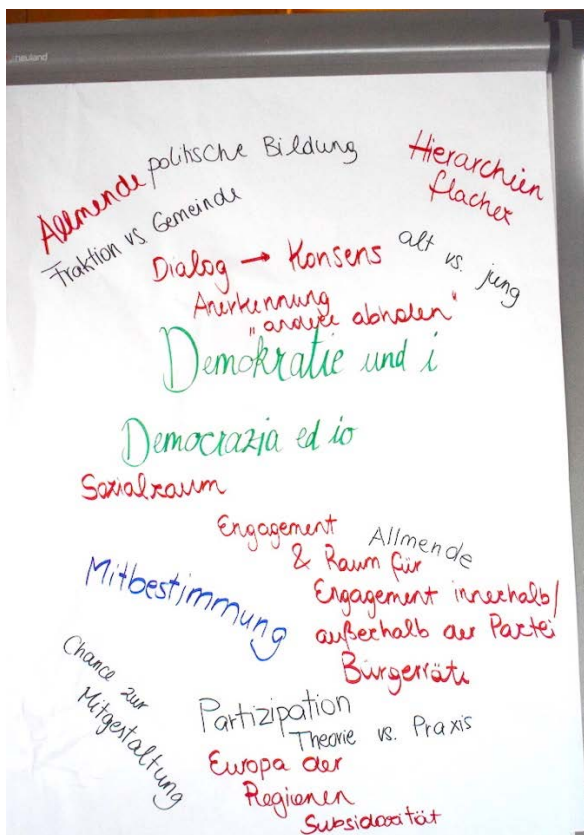 neuland
politische Bildung
Hierarchien
flacher
Allmende
Fraktion vs. Gemeinde
alt vs. jung
Dialog → Konsens
Anerkennung
„andere abholen“
Demokratie und i
Democrazia ed io
Sozialraum
Engagement
& Raum für
Engagement innerhalb/
außerhalb der Partei
Allmende
Mitbestimmung
Bürgerräte
Chance zur
Mitgestaltung
Partizipation
Theorie vs. Praxis
Europa der
Regionen
Subsidiarität